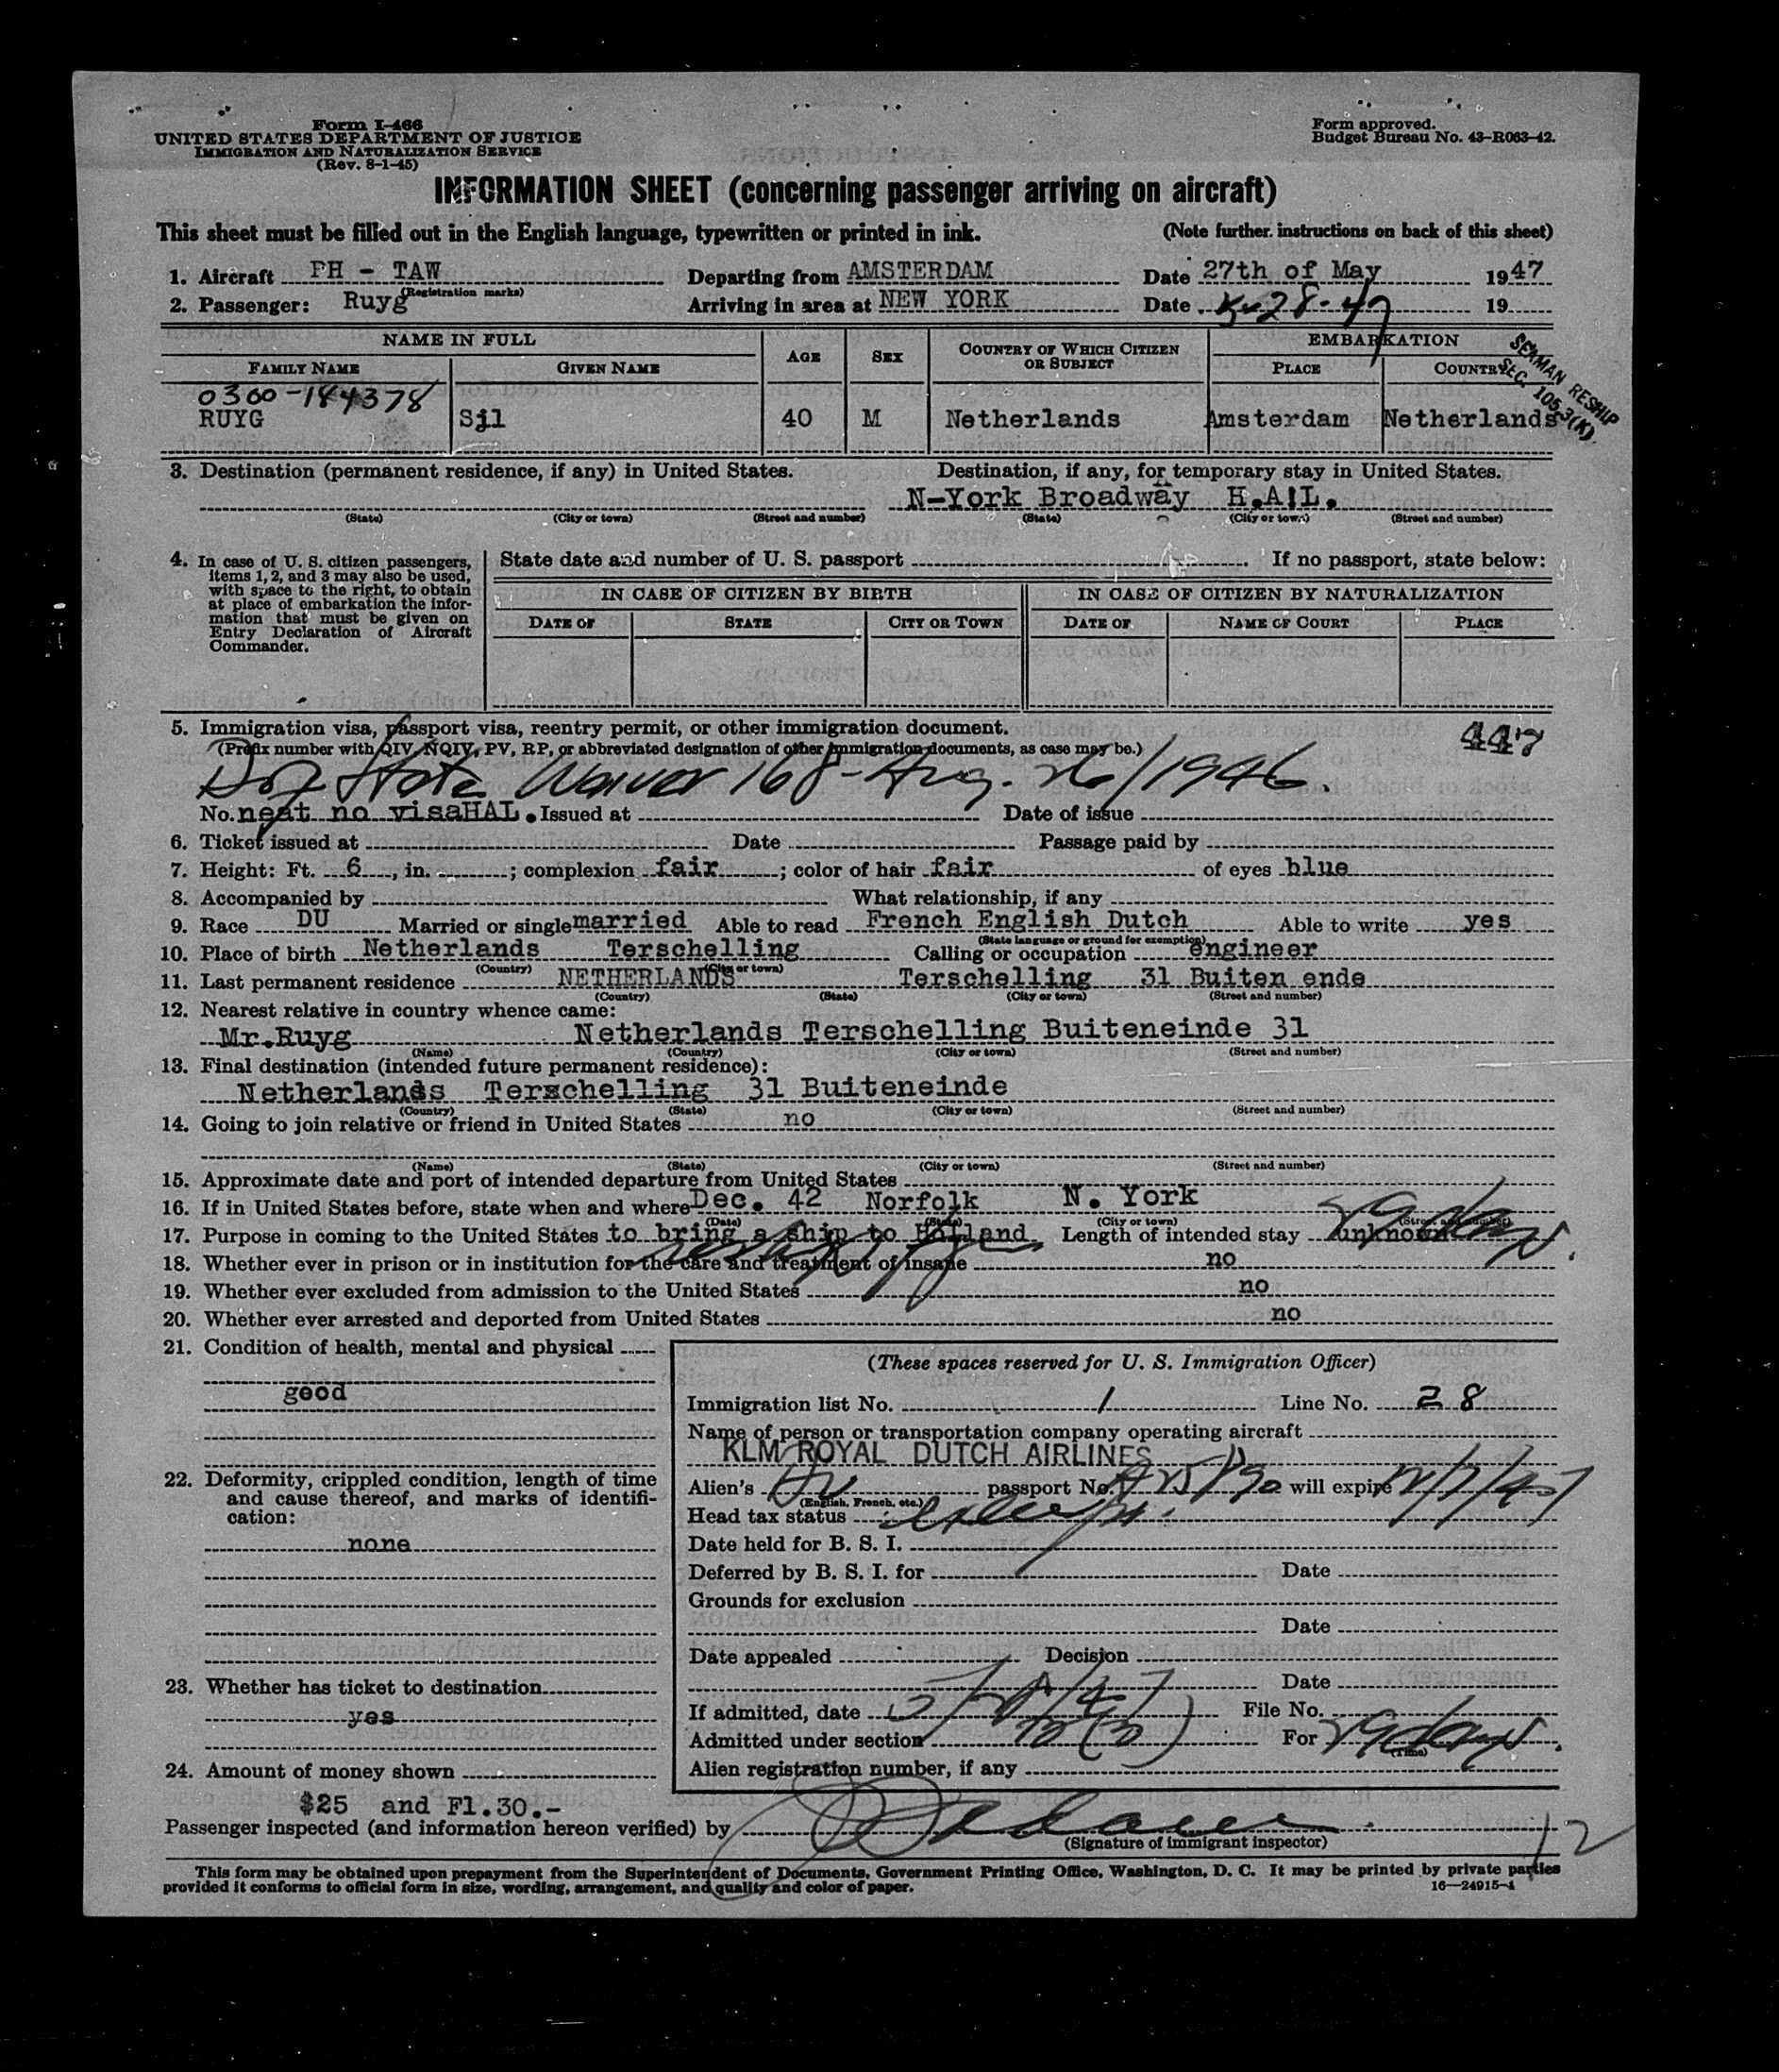 Form I-466
UNITED STATES DEPARTMENT OF JUSTICE
IMMIGRATION AND NATURALIZATION SERVICE
(Rev. 8-1-45)
Form approved.
Budget Bureau No. 43-R063-42.
INFORMATION SHEET (concerning passenger arriving on aircraft)
This sheet must be filled out in the English language, typewritten or printed in ink. (Note further instructions on back of this sheet)
1. Aircraft PH - TAW Departing from AMSTERDAM Date 27th of May 1947
(Registration marks)
2. Passenger: Ruyg Arriving in area at NEW YORK Date 28-47 19
NAME IN FULL AGE SEX COUNTRY OF WHICH CITIZEN OR SUBJECT EMBARKATION
FAMILY NAME GIVEN NAME PLACE COUNTRY
SEAMAN RESHIP
SEC. 105.3(K)
0300-184378
RUYG Sjl 40 M Netherlands Amsterdam Netherlands
3. Destination (permanent residence, if any) in United States. Destination, if any, for temporary stay in United States.
N-York Broadway H.A!L.
(State) (City or town) (Street and number) (State) (City or town) (Street and number)
4. In case of U. S. citizen passengers, items 1, 2, and 3 may also be used, with space to the right, to obtain at place of embarkation the information that must be given on Entry Declaration of Aircraft Commander.
State date and number of U. S. passport . If no passport, state below:
IN CASE OF CITIZEN BY BIRTH IN CASE OF CITIZEN BY NATURALIZATION
DATE OF STATE CITY OR TOWN DATE OF NAME OF COURT PLACE
5. Immigration visa, passport visa, reentry permit, or other immigration document. 447
(Prefix number with QIV, NQIV, PV, RP, or abbreviated designation of other immigration documents, as case may be.)
State Waiver 168 - Aug. 26/1946.
No. neat no visaHAL. Issued at Date of issue
6. Ticket issued at Date Passage paid by
7. Height: Ft. 6, in. ; complexion fair ; color of hair fair of eyes blue
8. Accompanied by What relationship, if any
9. Race DU Married or single married Able to read French English Dutch Able to write yes
(State language or ground for exemption)
10. Place of birth Netherlands Terschelling Calling or occupation engineer
(Country) (City or town)
11. Last permanent residence NETHERLANDS Terschelling 31 Buiten ende
(Country) (State) (City or town) (Street and number)
12. Nearest relative in country whence came:
Mr.Ruyg Netherlands Terschelling Buiteneinde 31
(Name) (Country) (City or town) (Street and number)
13. Final destination (intended future permanent residence):
Netherlands Terschelling 31 Buiteneinde
(Country) (State) (City or town) (Street and number)
14. Going to join relative or friend in United States no
(Name) (State) (City or town) (Street and number)
15. Approximate date and port of intended departure from United States
16. If in United States before, state when and where Dec. 42 Norfolk N. York
(Date) (State) (City or town) (Street and number)
17. Purpose in coming to the United States to bring a ship to Holland Length of intended stay unknown 29 days
18. Whether ever in prison or in institution for the care and treatment of insane no
19. Whether ever excluded from admission to the United States no
20. Whether ever arrested and deported from United States no
21. Condition of health, mental and physical
good
22. Deformity, crippled condition, length of time and cause thereof, and marks of identification:
none
23. Whether has ticket to destination
yes
24. Amount of money shown
$25 and Fl.30.-
(These spaces reserved for U. S. Immigration Officer)
Immigration list No. 1 Line No. 28
Name of person or transportation company operating aircraft
KLM ROYAL DUTCH AIRLINES
Alien's Du passport No. will expire
(English, French, etc.)
Head tax status exempt
Date held for B. S. I.
Deferred by B. S. I. for Date
Grounds for exclusion
Date
Date appealed Decision
Date
If admitted, date 5/28/47 File No.
Admitted under section For 29 days.
(Time)
Alien registration number, if any
Passenger inspected (and information hereon verified) by
(Signature of immigrant inspector)
12
This form may be obtained upon prepayment from the Superintendent of Documents, Government Printing Office, Washington, D. C. It may be printed by private parties
provided it conforms to official form in size, wording, arrangement, and quality and color of paper. 16—24915-1